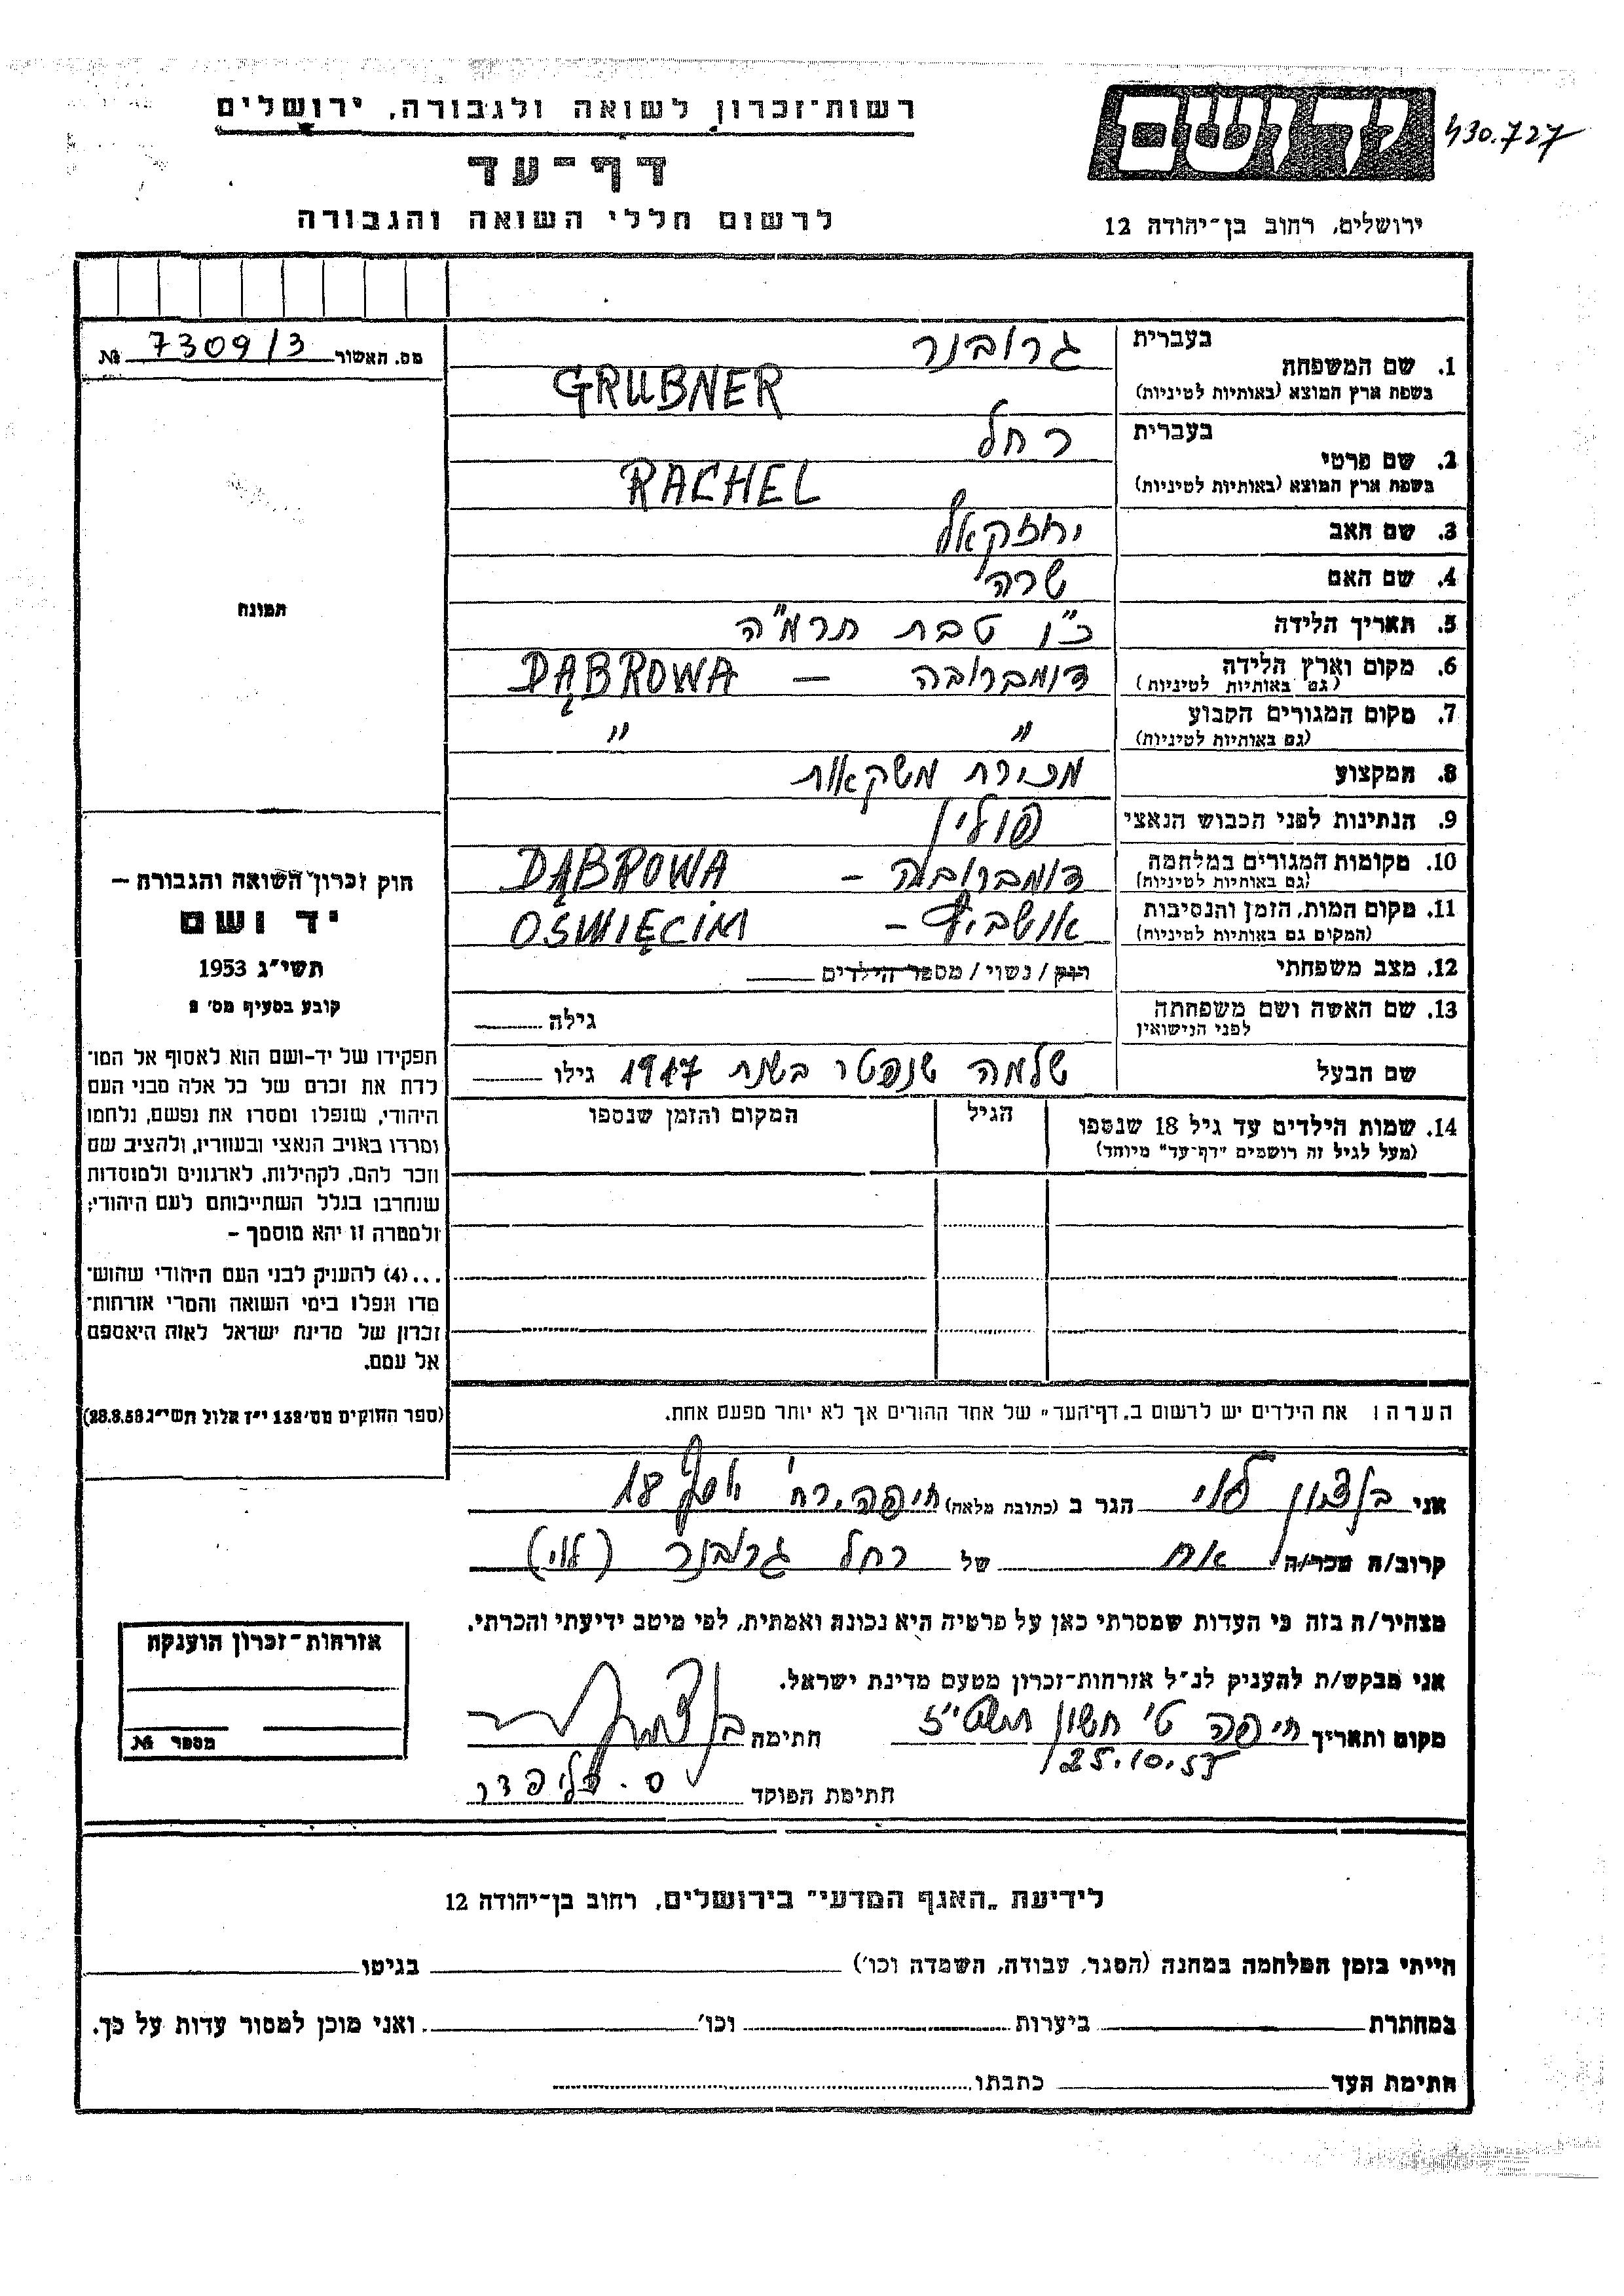 רשות־זכרון לשואה ולגבורה, ירושלים
דף־עד
לרשום חללי השואה והגבורה
יד ושם
430.727
ירושלים, רחוב בן־יהודה 12
מס. האשור 7309/3 №
תמונה
1. שם המשפחה בעברית גרובנר
בשפת ארץ המוצא (באותיות לטיניות) GRUBNER
2. שם פרטי בעברית רחל
בשפת ארץ המוצא (באותיות לטיניות) RACHEL
3. שם האב יחזקאל
4. שם האם שרה
5. תאריך הלידה כ"ו טבת תרמ"ה
6. מקום וארץ הלידה דומברובה — DĄBROWA
(גם באותיות לטיניות)
7. מקום המגורים הקבוע " "
(גם באותיות לטיניות)
8. המקצוע מכירת משקאות
9. הנתינות לפני הכבוש הנאצי פולין
10. מקומות המגורים במלחמה דומברובה – DĄBROWA
(גם באותיות לטיניות)
11. מקום המות, הזמן והנסיבות – OŚWIĘCIM
(המקום גם באותיות לטיניות)
12. מצב משפחתי רוק / נשוי / מספר הילדים
13. שם האשה ושם משפחתה גילה
לפני הנישואין
שם הבעל שלמה שנפטר בשנת 1917 גילו
14. שמות הילדים עד גיל 18 שנספו הגיל המקום והזמן שנספו
(מעל לגיל זה רושמים "דף־עד" מיוחד)
הערה: את הילדים יש לרשום ב"דף־העד" של אחד ההורים אך לא יותר מפעם אחת.
חוק זכרון השואה והגבורה –
יד ושם
תשי"ג 1953
קובע בסעיף מס' 2
תפקידו של יד־ושם הוא לאסוף אל המו־
לדת את זכרם של כל אלה מבני העם
היהודי, שנפלו ומסרו את נפשם, נלחמו
ומרדו באויב הנאצי ובעוזריו, ולהציב שם
וזכר להם, לקהילות, לארגונים ולמוסדות
שנחרבו בגלל השתייכותם לעם היהודי;
ולמטרה זו יהא מוסמך –
...(4) להעניק לבני העם היהודי שהוש־
מדו ונפלו בימי השואה והמרי אזרחות־
זכרון של מדינת ישראל לאות היאספם
אל עמם.
(ספר החוקים מס' 132 י"ז אלול תשי"ג 28.8.53)
אני בן ציון לוי הגר ב (כתובת מלאה) חיפה, רח' יוסף 18
קרוב/ה מכר/ה אח של רחל גרובנר (לוי)
מצהיר/ה בזה כי העדות שמסרתי כאן על פרטיה היא נכונה ואמתית, לפי מיטב ידיעתי והכרתי.
אני מבקש/ת להעניק לנ"ל אזרחות־זכרון מטעם מדינת ישראל.
מקום ותאריך חיפה ט' חשון חתימה
25.10.57
חתימת הפוקד
אזרחות־זכרון הוענקה
מספר №
לידיעת "האגף המדעי" בירושלים, רחוב בן־יהודה 12
הייתי בזמן המלחמה במחנה (הסגר, עבודה, השמדה וכו') בגיטו
במחתרת ביערות וכו' ואני מוכן למסור עדות על כך.
חתימת העד כתבתו